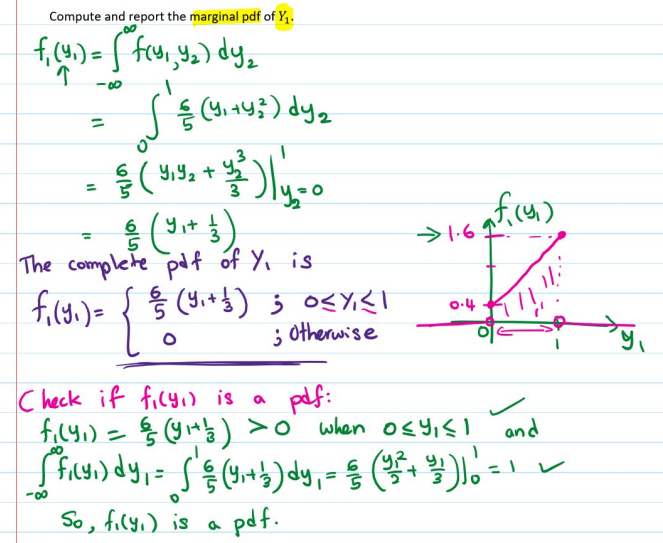 Compute and report the marginal pdf of Y₁.
f₁(y₁) = ∫_{-∞}^{∞} f(y₁, y₂) dy₂
↑
= ∫₀¹ 6/5 (y₁+y₂²) dy₂
= 6/5 ( y₁y₂ + y₂³/3 ) |_{y₂=0}^{1}
= 6/5 ( y₁ + 1/3 )
The complete pdf of Y₁ is
f₁(y₁) = { 6/5 (y₁+1/3) ; 0≤Y₁≤1
0 ; Otherwise
f₁(y₁)
→ 1.6
0.4
0 1 y₁
Check if f₁(y₁) is a pdf:
f₁(y₁) = 6/5 (y₁+1/3) >0 when 0≤y₁≤1 ✓ and
∫_{-∞}^{∞} f₁(y₁) dy₁ = ∫₀¹ 6/5 (y₁+1/3) dy₁ = 6/5 ( y₁²/2 + y₁/3 )|₀¹ = 1 ✓
So, f₁(y₁) is a pdf.